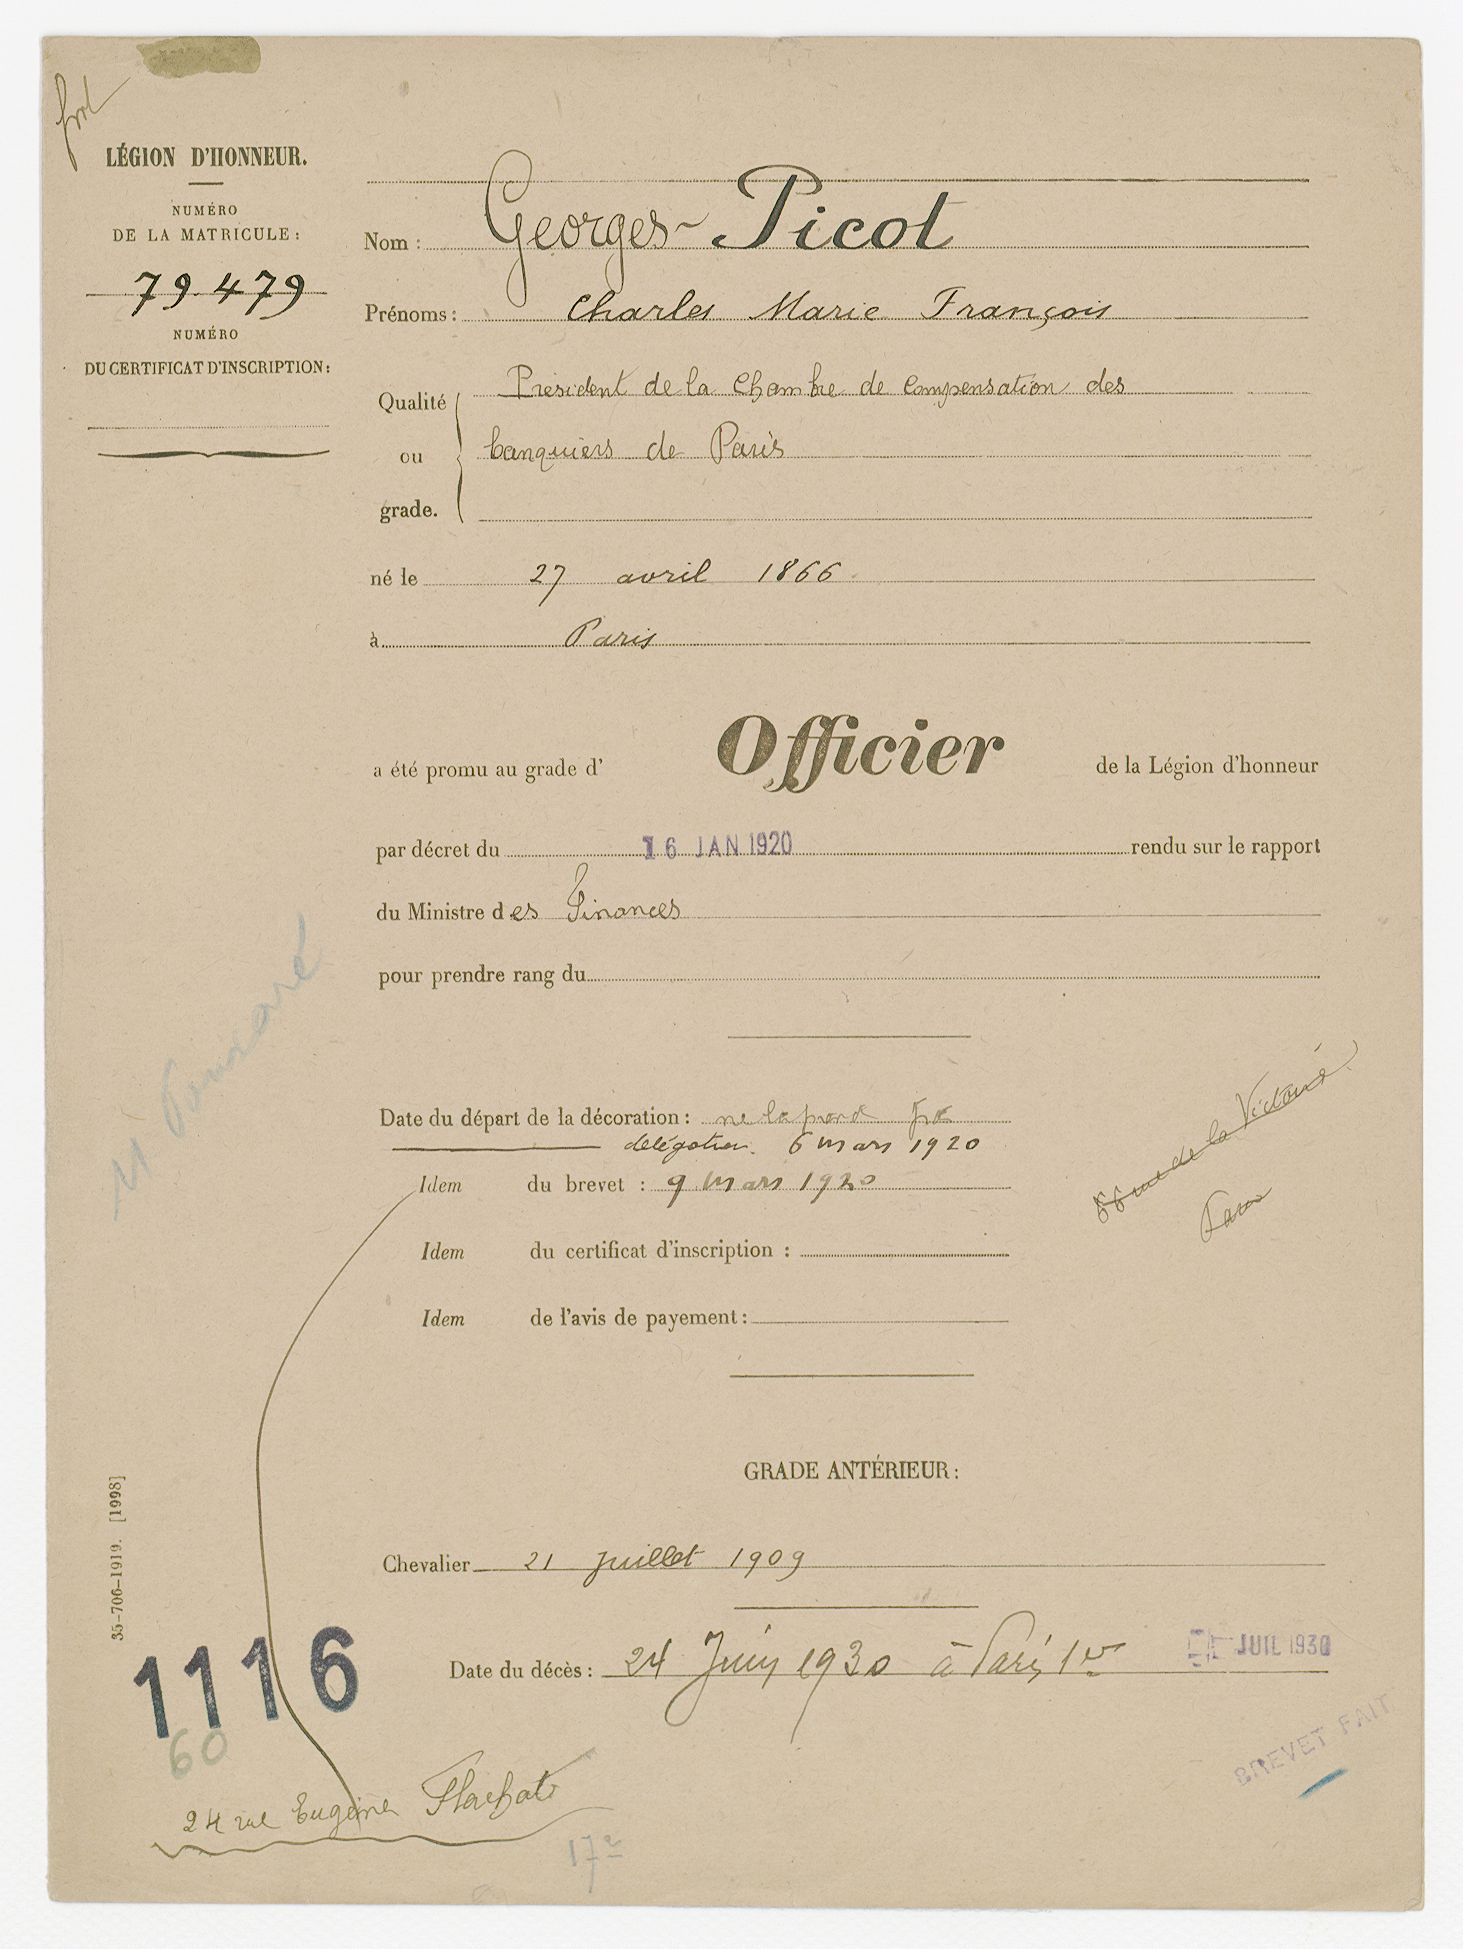 LÉGION D'HONNEUR.
NUMÉRO
DE LA MATRICULE :
79.479
NUMÉRO
DU CERTIFICAT D'INSCRIPTION :
Nom : Georges-Picot
Prénoms : Charles Marie François
Qualité ou grade. Président de la Chambre de Compensation des
banquiers de Paris
né le 27 avril 1866
à Paris
a été promu au grade d' Officier de la Légion d'honneur
par décret du 16 JAN 1920 rendu sur le rapport
du Ministre des Finances
pour prendre rang du
Date du départ de la décoration : ne la prend pas
délégation. 6 mars 1920
Idem du brevet : 9 mars 1920
Idem du certificat d'inscription :
Idem de l'avis de payement :
66 rue de la Victoire
Paris
GRADE ANTÉRIEUR :
Chevalier 21 Juillet 1909
Date du décès : 24 Juin 1930 à Paris 1er
JUIL 1930
BREVET FAIT
35-706-1919. [1998]
1116
60
24 rue Eugène Flachat
17e